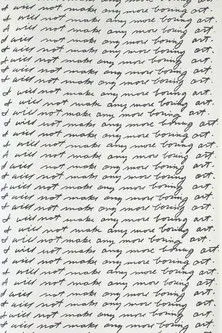 I will not make any more boring art.
I will not make any more boring art.
I will not make any more boring art.
I will not make any more boring art.
I will not make any more boring art.
I will not make any more boring art.
I will not make any more boring art.
I will not make any more boring art.
I will not make any more boring art.
I will not make any more boring art.
I will not make any more boring art.
I will not make any more boring art.
I will not make any more boring art.
I will not make any more boring art.
I will not make any more boring art.
I will not make any more boring art.
I will not make any more boring art.
I will not make any more boring art.
I will not make any more boring art.
I will not make any more boring art.
I will not make any more boring art.
I will not make any more boring art.
I will not make any more boring art.
I will not make any more boring art.
I will not make any more boring art.
I will not make any more boring art.